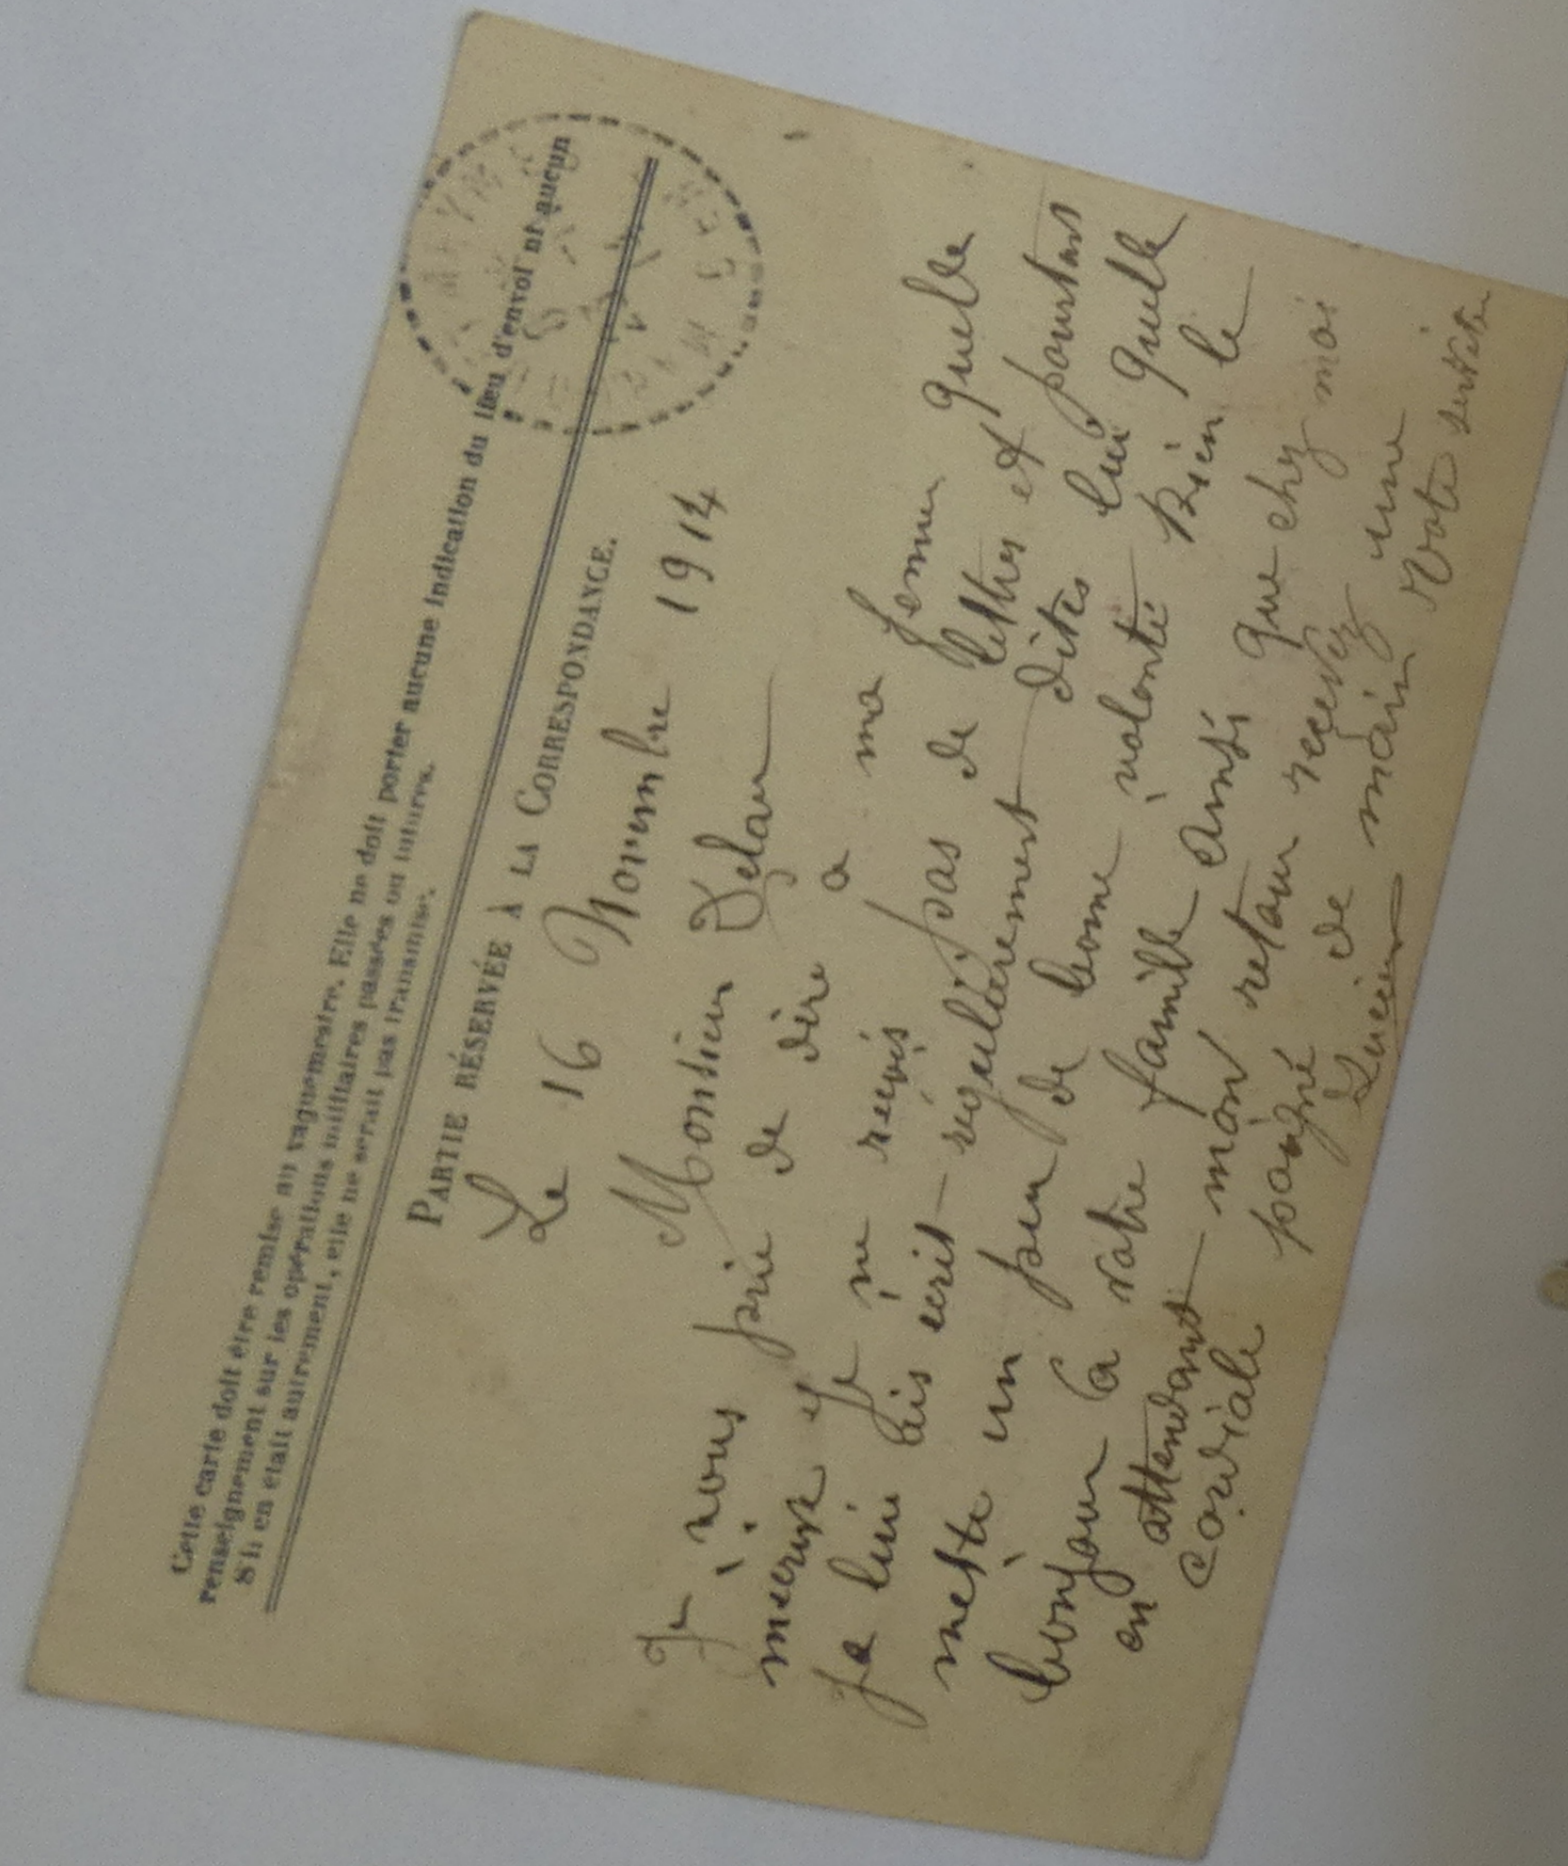 Cette carte doit être remise au vaguemestre. Elle ne doit porter aucune indication du lieu d'envoi ni aucun
renseignement sur les opérations militaires passées ou futures.
S'il en était autrement, elle ne serait pas transmise.
PARTIE RÉSERVÉE À LA CORRESPONDANCE.
Le 16 Novembre 1914
Monsieur
Je vous prie de dire a ma femme quelle
mecrive Je ne reçois pas de lettres et pourtant
je lui ais écrit régulièrement dites lui quelle
mette un peu de bonne volonté bien le
bonjour a votre famille ainsi que chez moi
en attendant mon retour recevez une
cordiale poigné de main Votre
Lucien